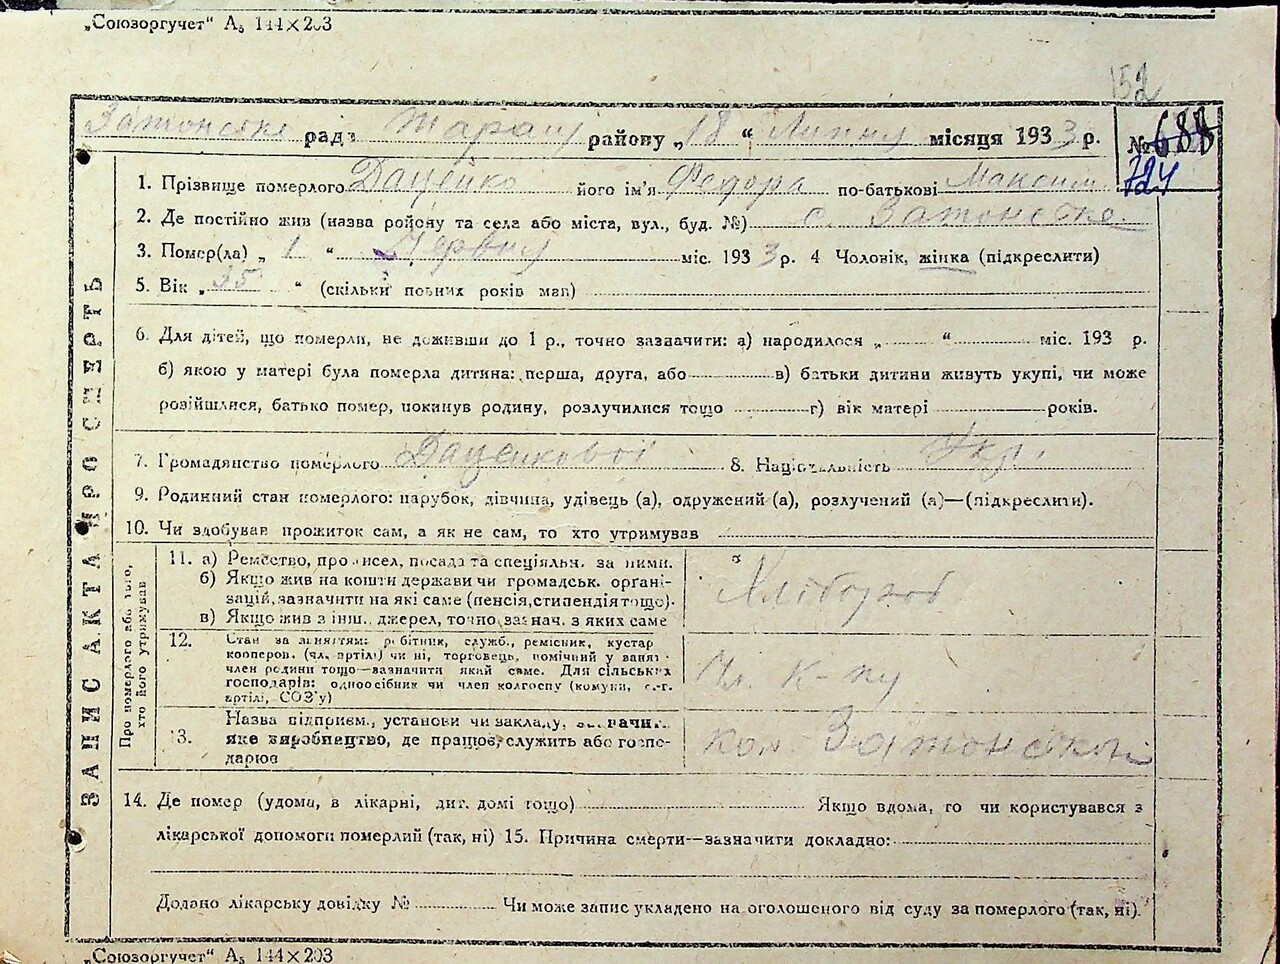 „Союзоргучет“ А₅ 144×203
152
Затонське рада Таращ району „18“ Липню місяця 1933 р.
№ 688
724
1. Прізвище померлого Даценко його ім'я Федора по-батькові Максим
2. Де постійно жив (назва району та села або міста, вул., буд. №) с. Затонське
3. Помер(ла) „1“ Червню міс. 1933 р. 4 Чоловік, жінка (підкреслити)
5. Вік „35“ (скільки повних років мав)
6. Для дітей, що померли, не доживши до 1 р., точно зазначити: а) народилося „ “ міс. 193 р.
б) якою у матері була померла дитина: перша, друга, або в) батьки дитини живуть укупі, чи може
розійшлися, батько помер, покинув родину, розлучилися тощо г) вік матері років.
7. Громадянство померлого Даценкової 8. Національність Укр.
9. Родинний стан померлого: парубок, дівчина, удівець (а), одружений (а), розлучений (а)—(підкреслити).
10. Чи здобував прожиток сам, а як не сам, то хто утримував
ЗАПИС АКТА ПРО СМЕРТЬ
Про померлого або того,
хто його утримував
11. а) Ремество, промисел, посада та спеціяльн. за ними.
б) Якщо жив на кошти держави чи громадськ. органі-
зацій, зазначити на які саме (пенсія, стипендія тощо).
в) Якщо жив з інш. джерел, точно зазнач. з яких саме
Хлібороб
12. Стан за заняттям: робітник, служб., ремісник, кустар
кооперов. (чл. артілі) чи ні, торговець, помічний у занят.
член родини тощо—зазначити який саме. Для сільських
господарів: одноосібник чи член колгоспу (комуни, с.-г.
артілі, СОЗ'у)
Чл. К-пу
13. Назва підприєм., установи чи закладу, зазначит.
яке виробництво, де працює, служить або госпо-
дарює
Кол Затонської
14. Де помер (удома, в лікарні, дит. домі тощо) Якщо вдома, то чи користувався з
лікарської допомоги померлий (так, ні) 15. Причина смерти—зазначити докладно:
Додано лікарську довідку № Чи може запис укладено на оголошеного від суду за померлого (так, ні).
„Союзоргучет“ А₅ 144×203